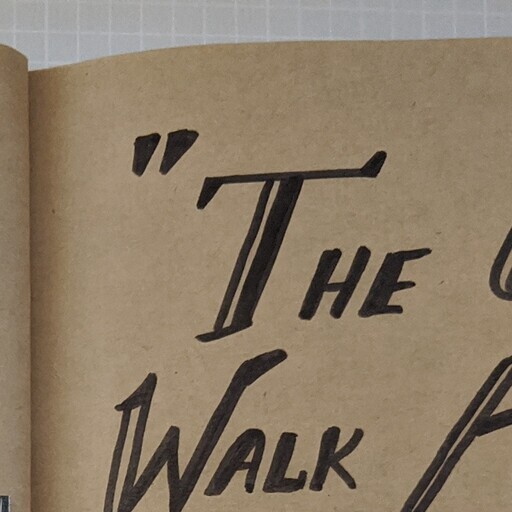 "THE
WALK